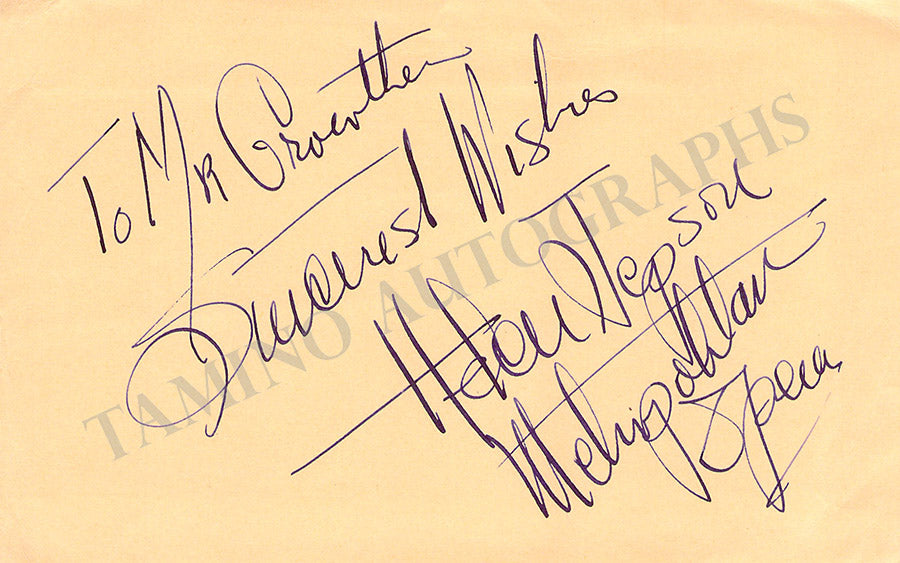 To Mr Crowther
Sincerest Wishes
Helen Jepson
Metropolitan
Opera
TAMINO AUTOGRAPHS